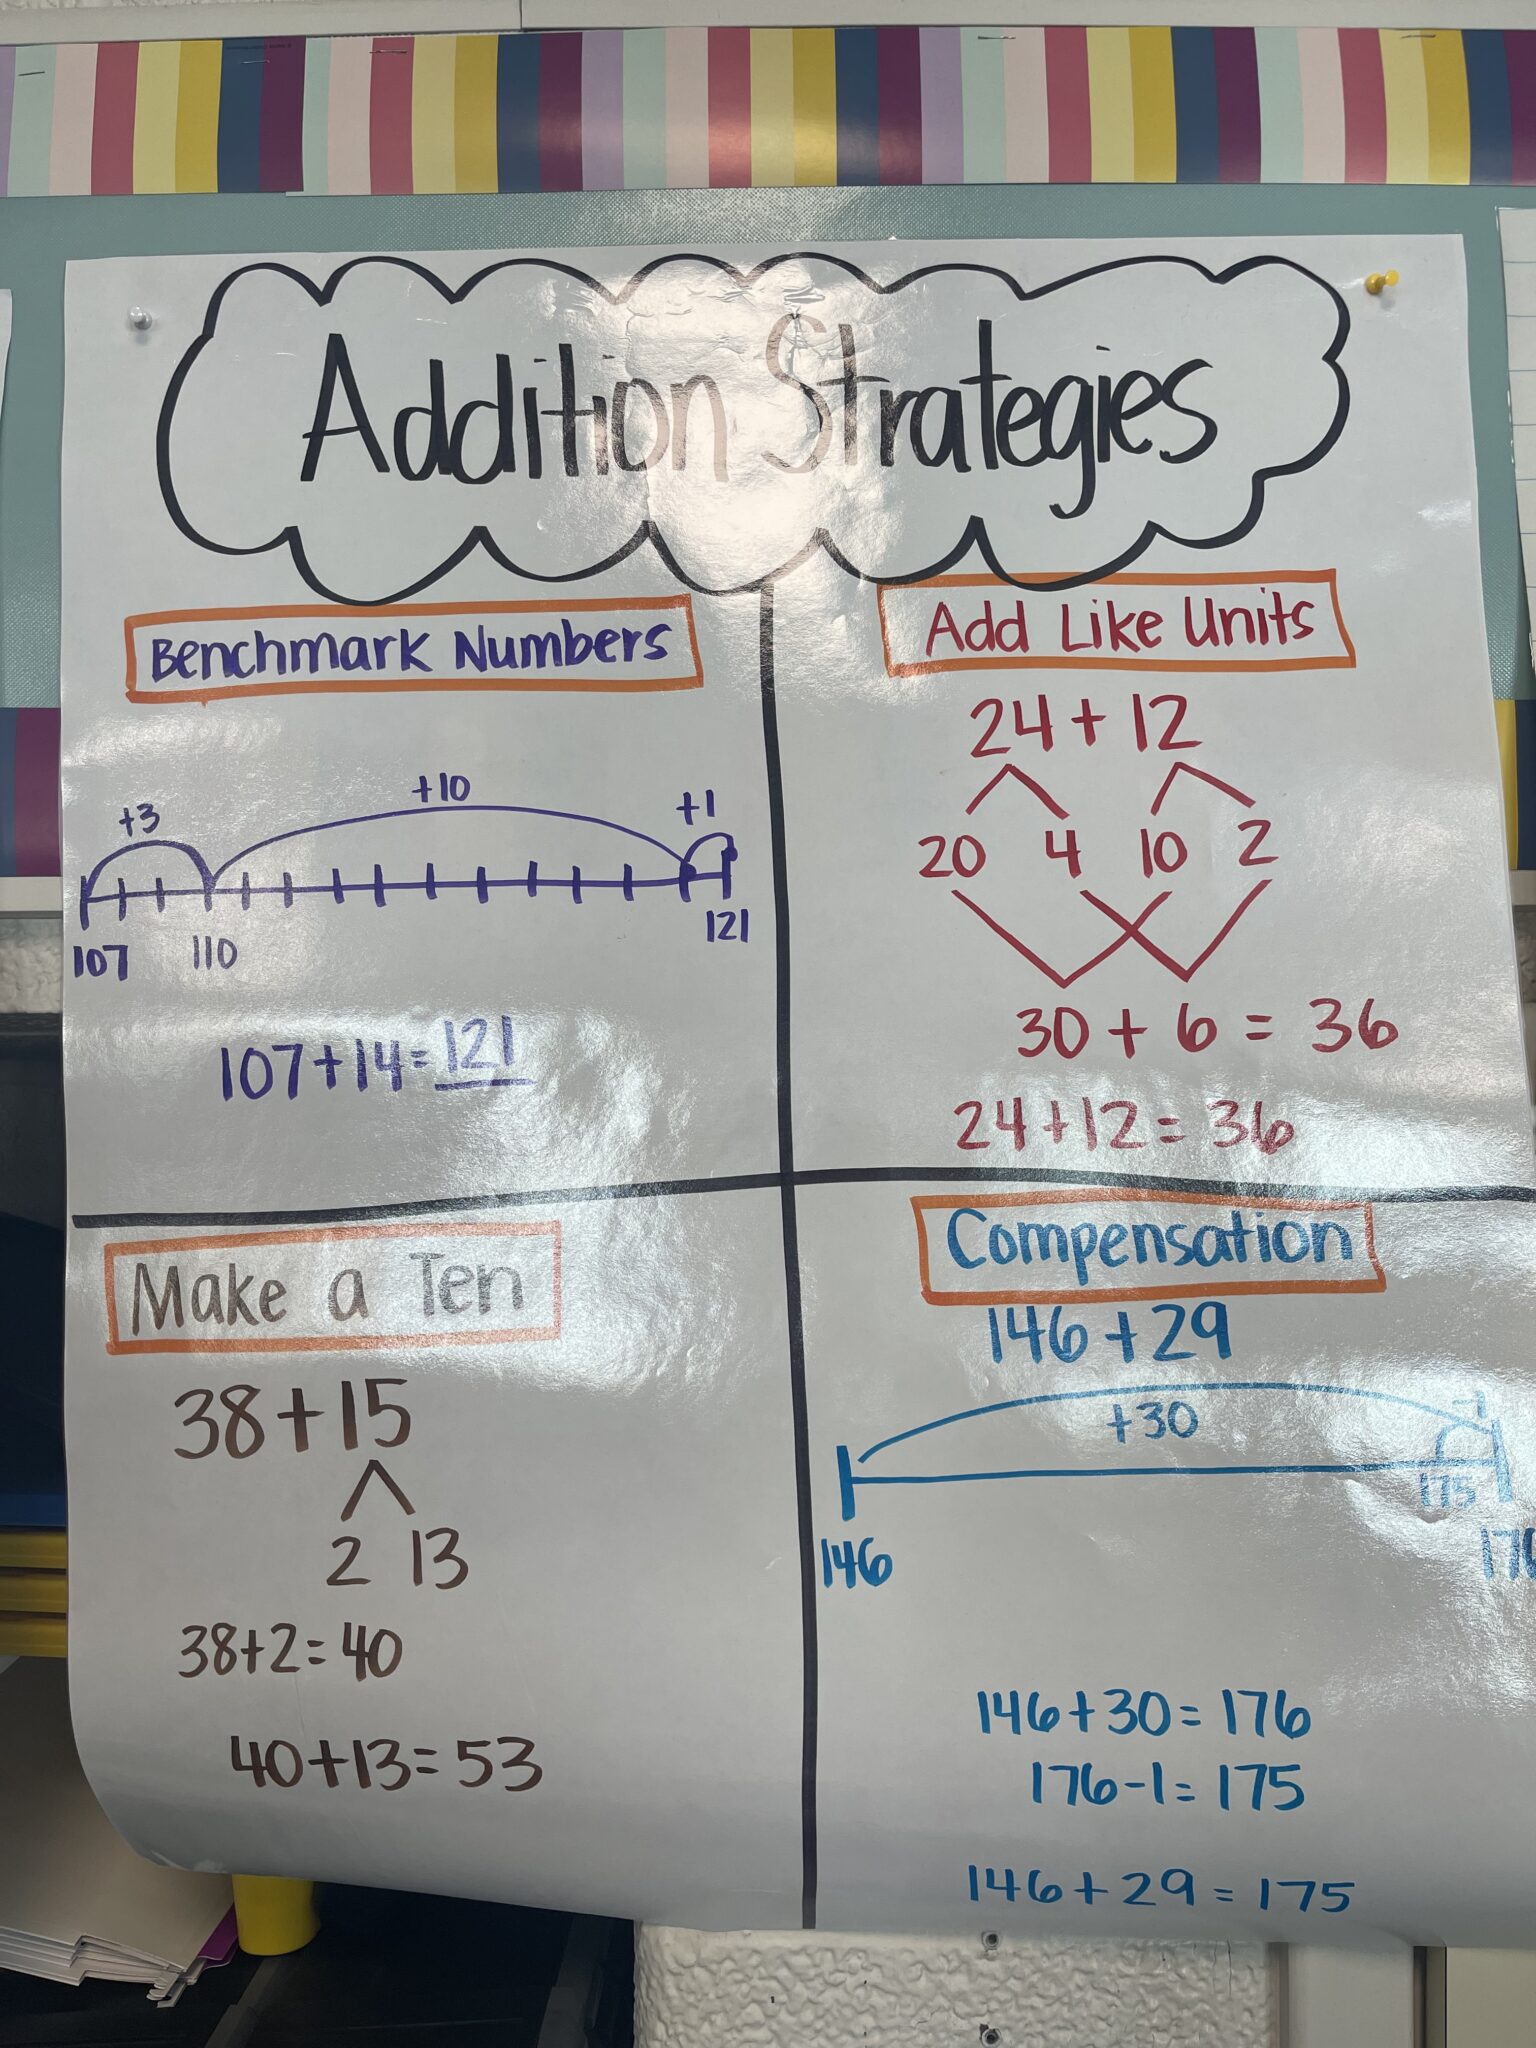 Addition Strategies
Benchmark Numbers
+3 +10 +1
107 110 121
107+14=121
Add Like Units
24+12
20 4 10 2
30+6=36
24+12=36
Make a Ten
38+15
2 13
38+2=40
40+13=53
Compensation
146+29
+30 -1
175
146 176
146+30=176
176-1=175
146+29=175